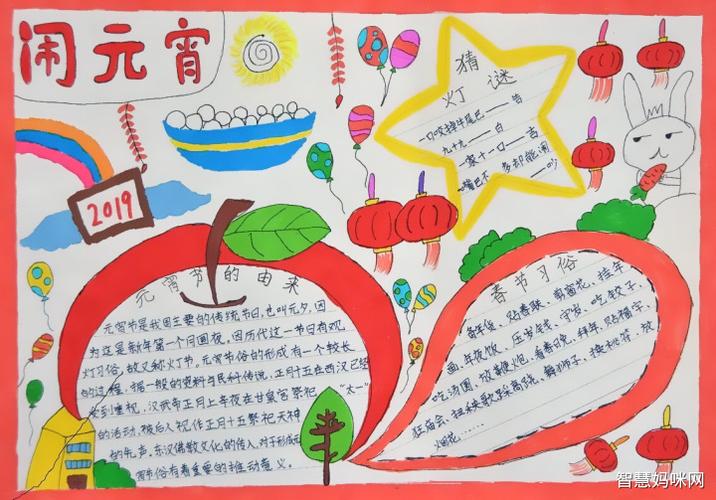 闹元宵
2019
猜
灯谜
一口咬掉牛尾巴——告
九十九——白
一家十一口——吉
嘴巴不多却能闹——吵
元宵节的由来
元宵节是我国主要的传统节日,也叫元夕,因
为这是新年第一个月圆夜。因历代这一节日有观
灯习俗,故又称火灯节。元宵节俗的形成有一个较长
的过程,据一般的资料与民科传说,正月十五在西汉已经
受到重视,汉武帝正月上午夜在甘泉宫祭祀“太一”
的活动,被后人视作正月十五祭祀天神
的先声。东汉佛教文化的传入,对于形成元
宵节俗有着重要的推动意义。
春节习俗
备年货、贴春联、剪窗花、挂年
画、年夜饭、压岁钱、守岁、吃饺子、
吃汤圆、放鞭炮、看春晚、拜年、贴福字、
狂庙会、扭秧歌、踩高跷、舞狮子、换桃符、放
烟花……
智慧妈咪网